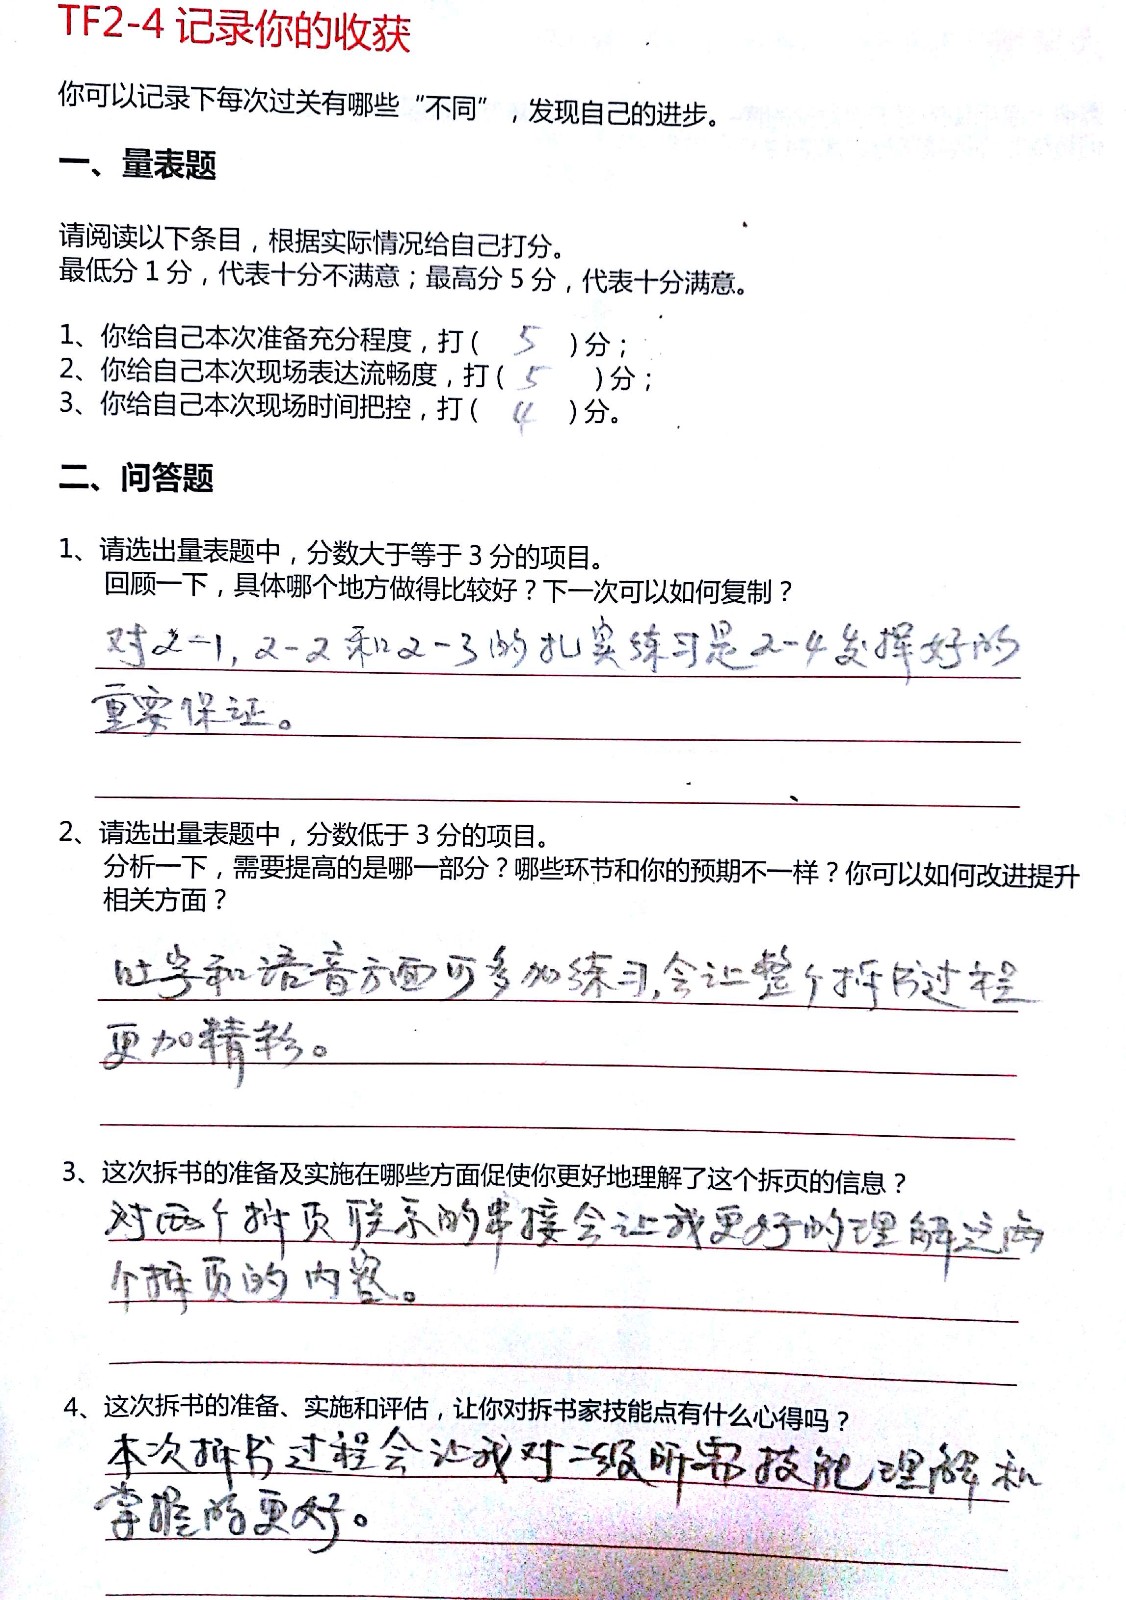 TF2-4 记录你的收获
你可以记录下每次过关有哪些“不同”，发现自己的进步。
一、量表题
请阅读以下条目，根据实际情况给自己打分。
最低分 1 分，代表十分不满意；最高分 5 分，代表十分满意。
1、你给自己本次准备充分程度，打（ 5 ）分；
2、你给自己本次现场表达流畅度，打（ 5 ）分；
3、你给自己本次现场时间把控，打（ 4 ）分。
二、问答题
1、请选出量表题中，分数大于等于 3 分的项目。
回顾一下，具体哪个地方做得比较好？下一次可以如何复制？
对2-1，2-2 和2-3的扎实练习是2-4发挥好的
重要保证。
2、请选出量表题中，分数低于 3 分的项目。
分析一下，需要提高的是哪一部分？哪些环节和你的预期不一样？你可以如何改进提升
相关方面？
吐字和语音方面可多加练习,会让整个拆书过程
更加精彩。
3、这次拆书的准备及实施在哪些方面促使你更好地理解了这个拆页的信息？
对两个拆页联系的串接会让我更好的理解这两
个拆页的内容。
4、这次拆书的准备、实施和评估，让你对拆书家技能点有什么心得吗？
本次拆书过程会让我对二级所需技能理解和
掌握的更好。